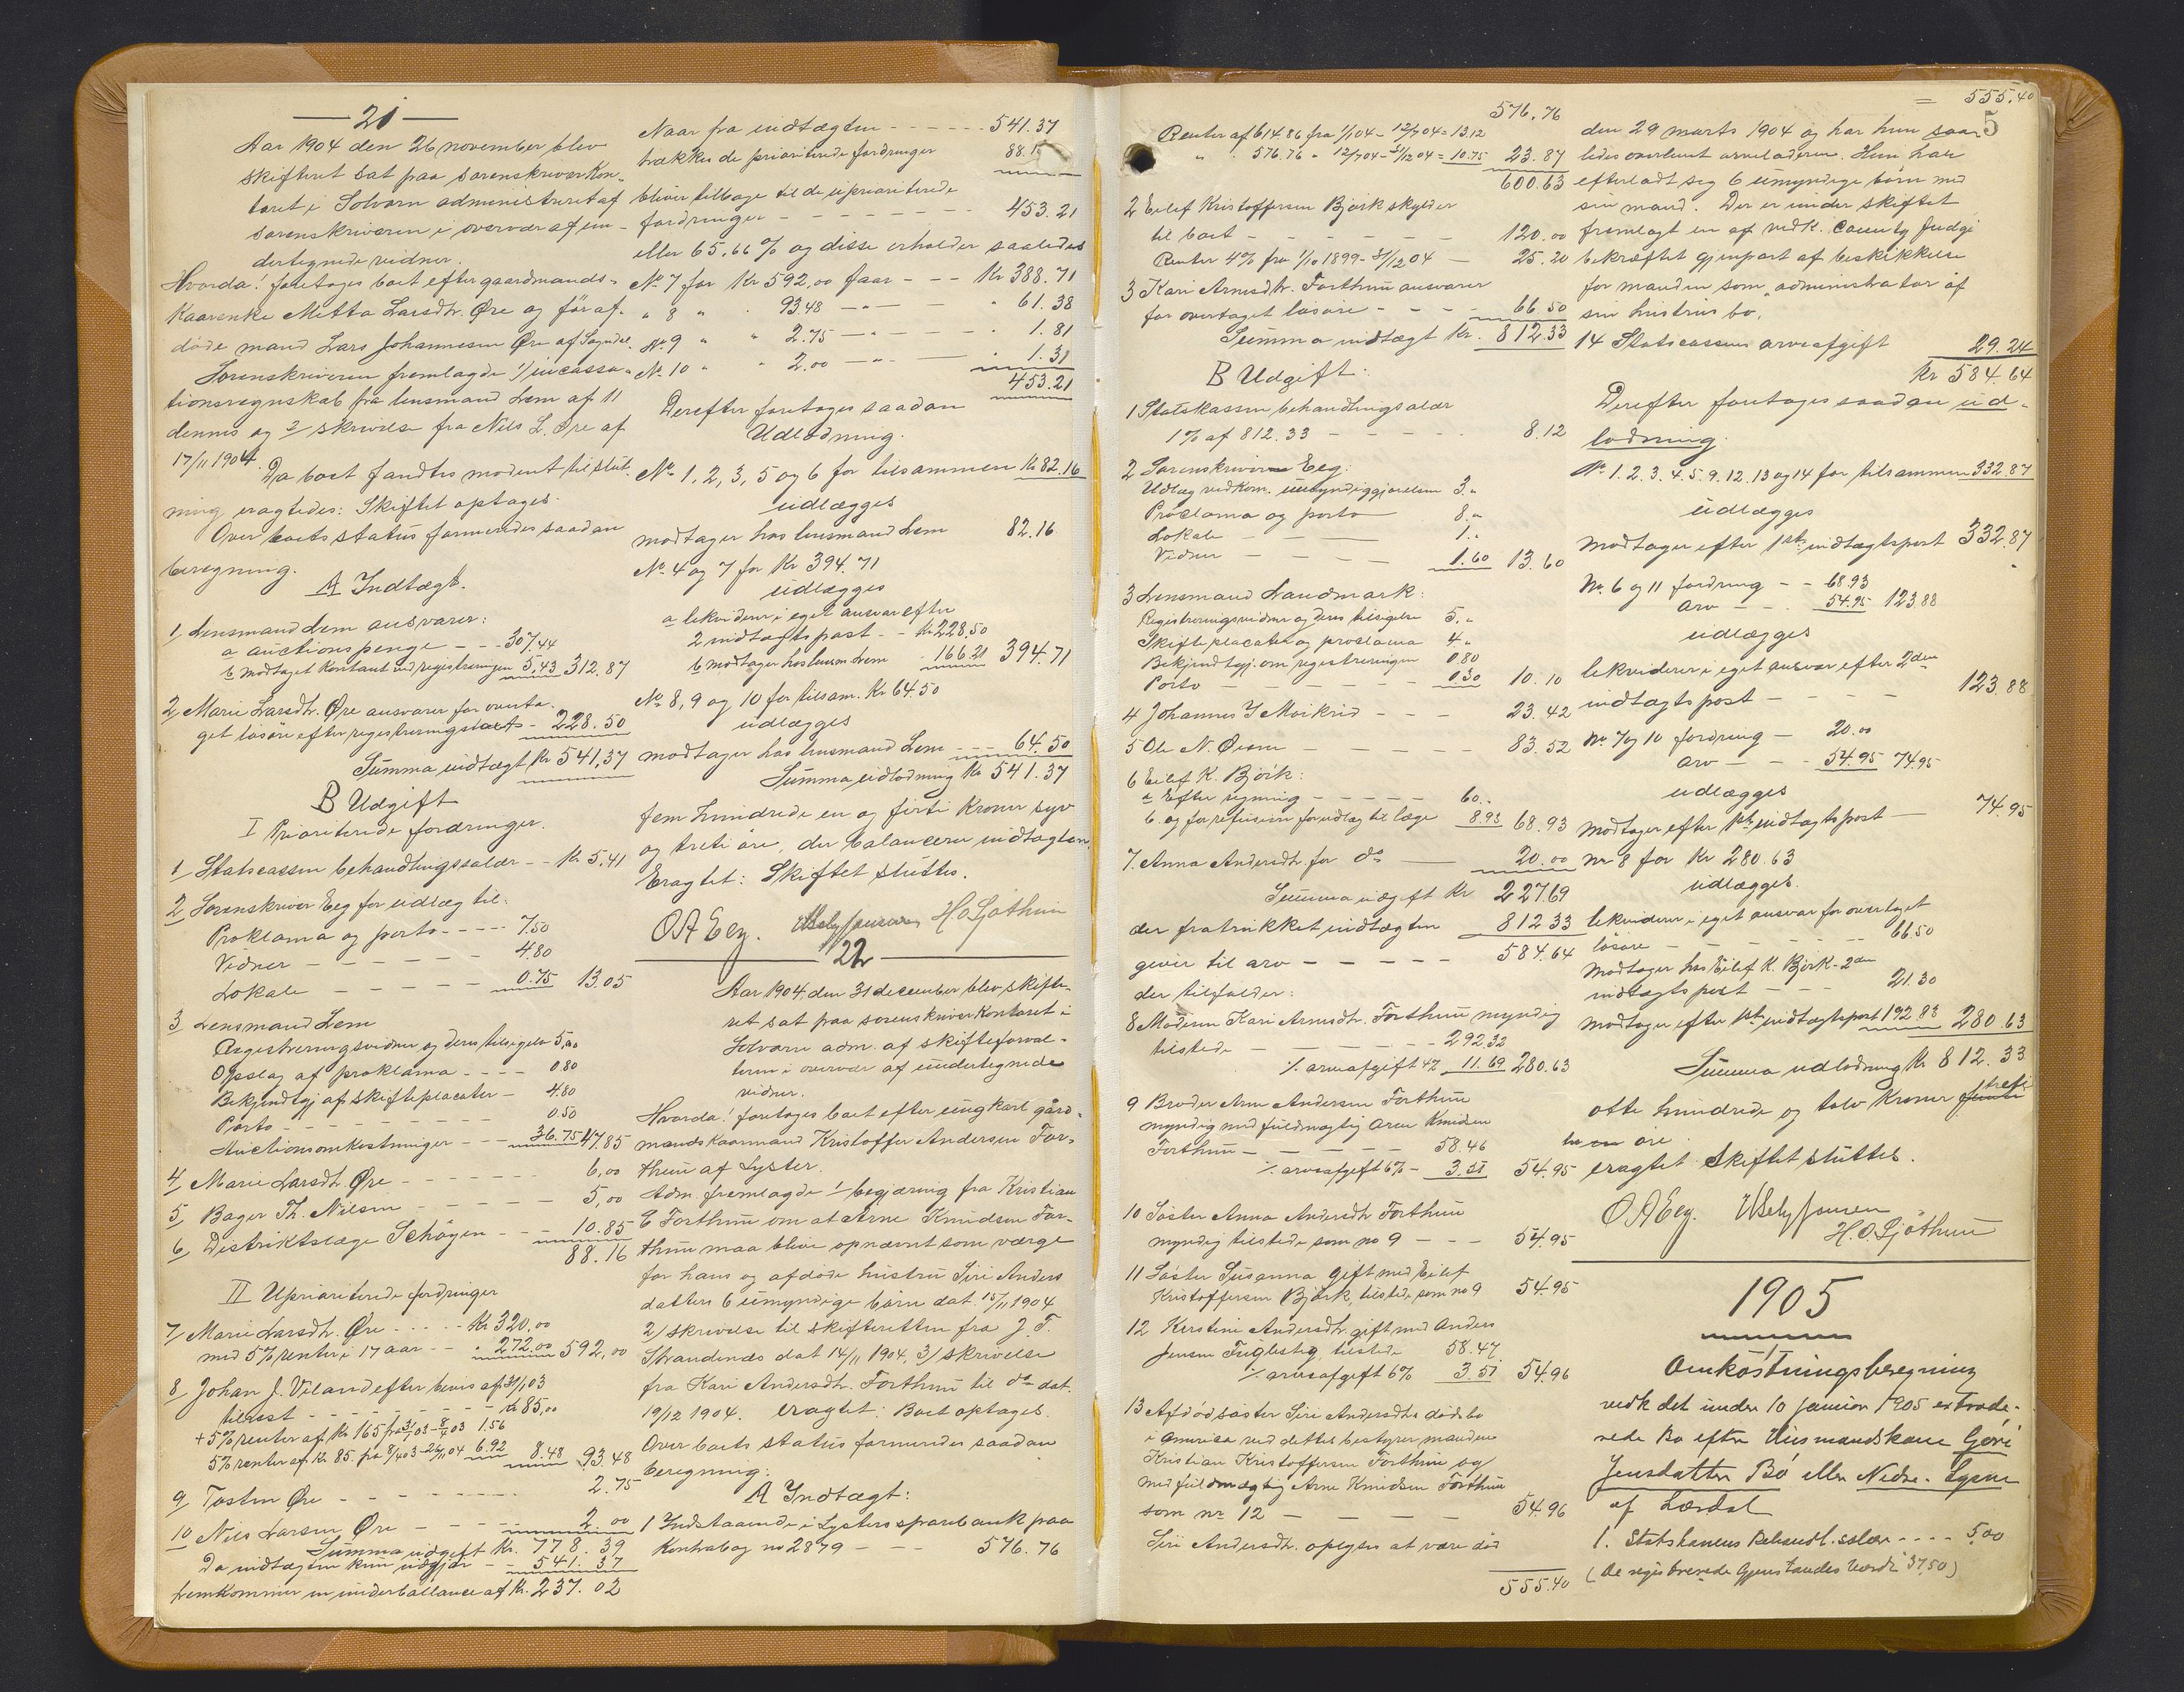 — 21 —
Aar 1904 den 26 november blev
skifteret sat paa sorenskriverkon-
toret i Solvorn administreret af
sorenskriveren i overvær af un-
dertegnede vidner.
Hvorda! foretoges boet efter gaardmands-
kaarenke Mitta Larsdtr. Øre og før af-
døde mand Lars Johannesen Øre af Sogndal.
Sorenskriveren fremlagde 1/ incassa-
tionsregnskab fra lensmand Lem af 11
dennes og 2/ skrivelse fra Nils L. Øre af
17/11 1904.
Da boet fandtes modent til slut-
ning eragtedes: Skiftet optages.
Over boets status formeredes saadan
beregning.
A Indtægt.
1, Lensmand Lem ansvarer:
a auctionspenge - - - 307.44
b modtaget kontant ved registreringen 5,43 312.87
2, Marie Larsdtr. Øre ansvarer for overta-
get løsøre efter registreringstaxt - 228.50
Summa indtægt Kr 541,37
B Udgift
I Prioriterede fordringer.
1 Statscassen behandlingssalær - - Kr 5.41
2 Sorenskriver Eeg for udlæg til:
Proklama og porto - - - - 7.50
Vidner - - - - - 4.80
Lokale - - - - - 0.75 13.05
3 Lensmand Lem
Registreringsvidner og deres tilsigelse 5,00
Opslag af proklama - - - - 0.80
Bekjendtgj af skifteplacater - 4.80
Porto - - - - - - - 0.50
Auctionsomkostninger - - - 36.75 47.85
4, Marie Larsdtr. Øre - - - - - 6,00
5, Bager Th. Nilsen - - - - - 5,00
6, Distriktslæge Schöyen - - 10.85
88.16
II Uprioriterede fordringer
7, Marie Larsdtr. Øre - - - - - Kr 320,00
med 5% renter i 17 aar - - " 272.00 592,00
8 Johan J. Viland efter bevis af 31/1 03
tilrest - - - - - - - - kr 85,00
+ 5% renter af Kr 165 fra 31/1 03 - 8/4 03 1.56
5% renter af Kr. 85. fra 8/4 03 - 26/11 04 6.92 8.48 93.48
9, Tosten Øre - - - - - - - - 2.75
10 Nils Larsen Øre - - - - - 2.00
Summa udgift Kr. 778.39
Da indtægten kun udgjør - - 541.37
fremkommer en underballance af Kr. 237.02
Naar fra indtægten - - - - - - 541.37
trækkes de prioriterede fordringer 88.1
bliver tilbage til de uprioriterede
fordringer - - - - - - - - 453.21
eller 65,66% og disse erholder saaledes
No 7 for Kr 592,00 faar - - - Kr 388.71
" 8 " " 93.48 - " - " 61.38
No 9 " " 2.75 - " - " 1.81
No 10 " " 2.00 - " - " 1.31
453.21
Derefter foretoges saadan
Udlodning.
No 1, 2, 3, 5 og 6 for tilsammen Kr 82.16
udlægges
modtager hos lensmand Lem 82.16
No 4 og 7 for Kr 394.71
udlægges
a likviderer i eget ansvar efter
2 indtægtspost - - kr 228.50
b modtager hos lensm Lem 166.21 394.71
No 8, 9 og 10 for tilsam. Kr 64.50
udlægges
modtager hos lensmand Lem - - - 64.50
Summa udlodning Kr 541.37
fem hundrede en og firti Kroner syv
og treti øre, der balancerer indtægten.
Eragtet: Skiftet sluttes.
O A Eeg. H O Sjøthun
22
Aar 1904, den 31 december blev skifte-
ret sat paa sorenskriverkontoret i
Solvorn adm. af skifteforval-
teren i overvær af undertegnede
vidner.
Hvorda! foretoges boet efter ungkarl gård-
mands kaarmand Kristoffer Andersen For-
thun af Lyster.
Adm. fremlagde 1/ begjæring fra Kristian
E Forthun om at Arne Knudsen For-
thun maa blive opnævnt som værge
for hans og afdøde hustru Siri Anders
datters 6 umyndige børn dat. 15/11 1904
2) skrivelse til skifteretten fra J. F.
Strandenæs dat 14/11 1904, 3) skrivelse
fra Kari Andersdtr. Forthun til do dat.
19/12 1904. eragtet: Boet optages.
Over boets status formeredes saadan
beregning:
A Indtægt:
1 Indstaaende i Lysters sparebank paa
Kontrabog no 2879 - - - 576.76
576.76
Renter af 614.86 fra 1/1 04 - 12/7 04 = 13.12
" " 576.76 " 12/7 04 - 31/12 04 = 10.75 23.87
600.63
2 Eilef Kristoffersen Bjørk skylder
til boet - - - - - - - 120.00
Renter 4% fra 1/10 1899 - 31/12 04 - 25.20
3 Kari Arnesdtr. Forthun ansvarer
for overtaget løsøre - - - - 66.50
Summa indtægt Kr. 812.33
B Udgift:
1 Statskassen behandlingssalær
1% af 812.33 - - - - - 8.12
2 Sorenskriver Eeg:
Udlæg ved Kom. umyndiggjørelsen 3."
Proclama og porto 8."
Lokale - - - 1."
Vidner - - - 1.60 13.60
3 Lensmand Landmark:
Registreringsvidner og deres tilsigelse 5."
Skifteplacater og proclama 4."
Bekjendtgj. om registreringen 0.80
Porto - - - - - - - 0.30 10.10
4 Johannes J Moikrid - - - 23.42
5 Ole N. Øien - - - - - - 83.52
6 Eilef K. Bjørk:
a Efter regning - - - - - 60."
b. og for refusion for udlæg til læge 8.93 68.93
7. Anna Andersdtr. for do - 20.00
Summa udgift Kr 227.69
der fratrukket indtægten 812.33
giver til arv - - - - - 584.64
der tilfalder:
8 Moderen Kari Arnesdtr. Forthun myndig
tilstede - - - - - - - 292.32
÷ arveafgift 4% 11.69 280.63
9 Broder Arne Andersen Forthun
myndig med fuldmægtig Arne Knudsen
Forthun - - - - 58.46
÷ arveafgift 6% - 3.51 54.95
10 Søster Anna Andersdtr Forthun
myndig tilstede som no 9 - - - 54.95
11 Søster Susanna gift med Eilef
Kristoffersen Bjørk, tilstede som no 9 54.95
12 Kirstine Andersdtr. gift med Anders
Jensen Fuglesteg, tilstede 58.47
÷ arveafgift 6% 3.51 54.96
13 Afdød søster Siri Andersdtrs dødsbo
i America ved dettes bestyrer manden
Kristian Kristoffersen Forthun og
med fuldmægtig Arne Knudsen Forthun
som nr 12 - - - - - 54.96
Siri Andersdtr. oplyses at være død
555.40
= 555.40
5
den 29 marts 1904 og har hun saa-
ledes overlevet arveladeren. Hun har
efterladt sig 6 umyndige børn med
sin mand. Der er under skiftet
fremlagt en af vedk. County Judge
bekræftet gjenpart af beskikkelse
for manden som "administrator af
sin hustrus bo.
14 Statscassens arveafgift 29.24
Kr 584.64
Derefter foretoges saadan ud-
lodning.
No 1. 2. 3. 4. 5. 9. 12. 13 og 14 for tilsammen 332.87
udlægges
modtager efter 1ste indtægtspost 332.87
No. 6 og 11 fordring - - 68.93
arv - - - 54.95 123.88
udlægges
likviderer i eget ansvar efter 2den
indtægtspost - - - - 123.88
No. 7 og 10 fordring - 20.00
arv - - - 54.95 74.95
udlægges
modtager efter 1ste indtægtspost - 74.95
nr 8 for Kr 280.63
udlægges.
likviderer i eget ansvar for overtaget
løsøre - - - - - - 66.50
modtager hos Eilef K. Bjørk - 2den
indtægtspost - - - 21.30
modtager efter 1ste indtægtspost 192.83 280.63
Summa udlodning Kr 812.33
otte hundrede og tolv Kroner treti
tre øre.
eragtet Skiftet sluttes.
O A Eeg.
H. O. Sjøthun
1905
Omkostningsberegning
vedk det under 10 januar 1905 extrade-
rede Bo efter Huusmandskone Gøri
Jensdatter Bø eller Nedre-Lysne
af Lærdal
1. Statskassens Behandl. salær - - - - 5,00
(De registrerede Gjenstandes Værdi 37,50)